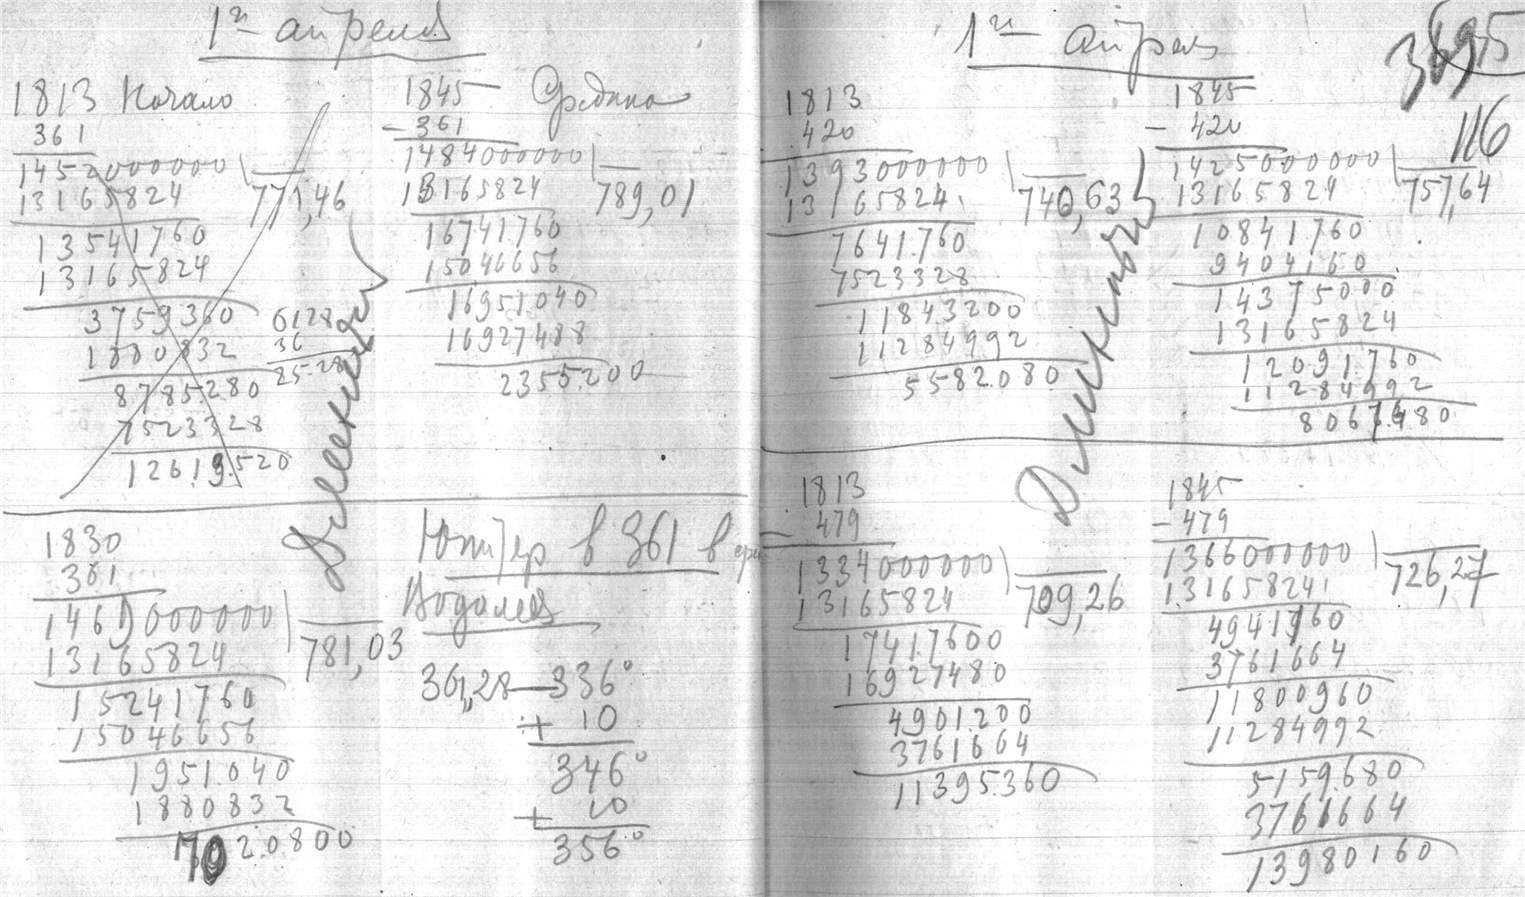 1ое апреля
1813 Начало
361
1452000000
771,46
13165824
13541760
13165824
3759360
1880832
8785280
7523328
12619.520
6128
36
25.28
1845 Средина
- 361
1484000000
789,01
13165824
16741.760
15046656
16951040
16927488
2355.200
1830
361
1469000000
781,03
13165824
15241760
15046656
1951.040
1880832
70 20800
Юпитер в 361 в
Водолее
361,28 — 336°
+ 10
346°
+ 10
356°
1ое апреля
3895
116
1813
420
1393000000
740,63
13165824
7641.760
7523328
11843200
11284992
5582.080
1845
- 420
1425000000
757,64
13165824
10841760
9404160
14375000
13165824
12091.760
11284992
8067680
1813
- 479
1334000000
709,26
13165824
17417600
16927480
4901.200
3761664
11395360
1845
- 479
1366000000
726,27
13165824
4941760
3761664
11800960
11284992
5159.680
3761664
13980160